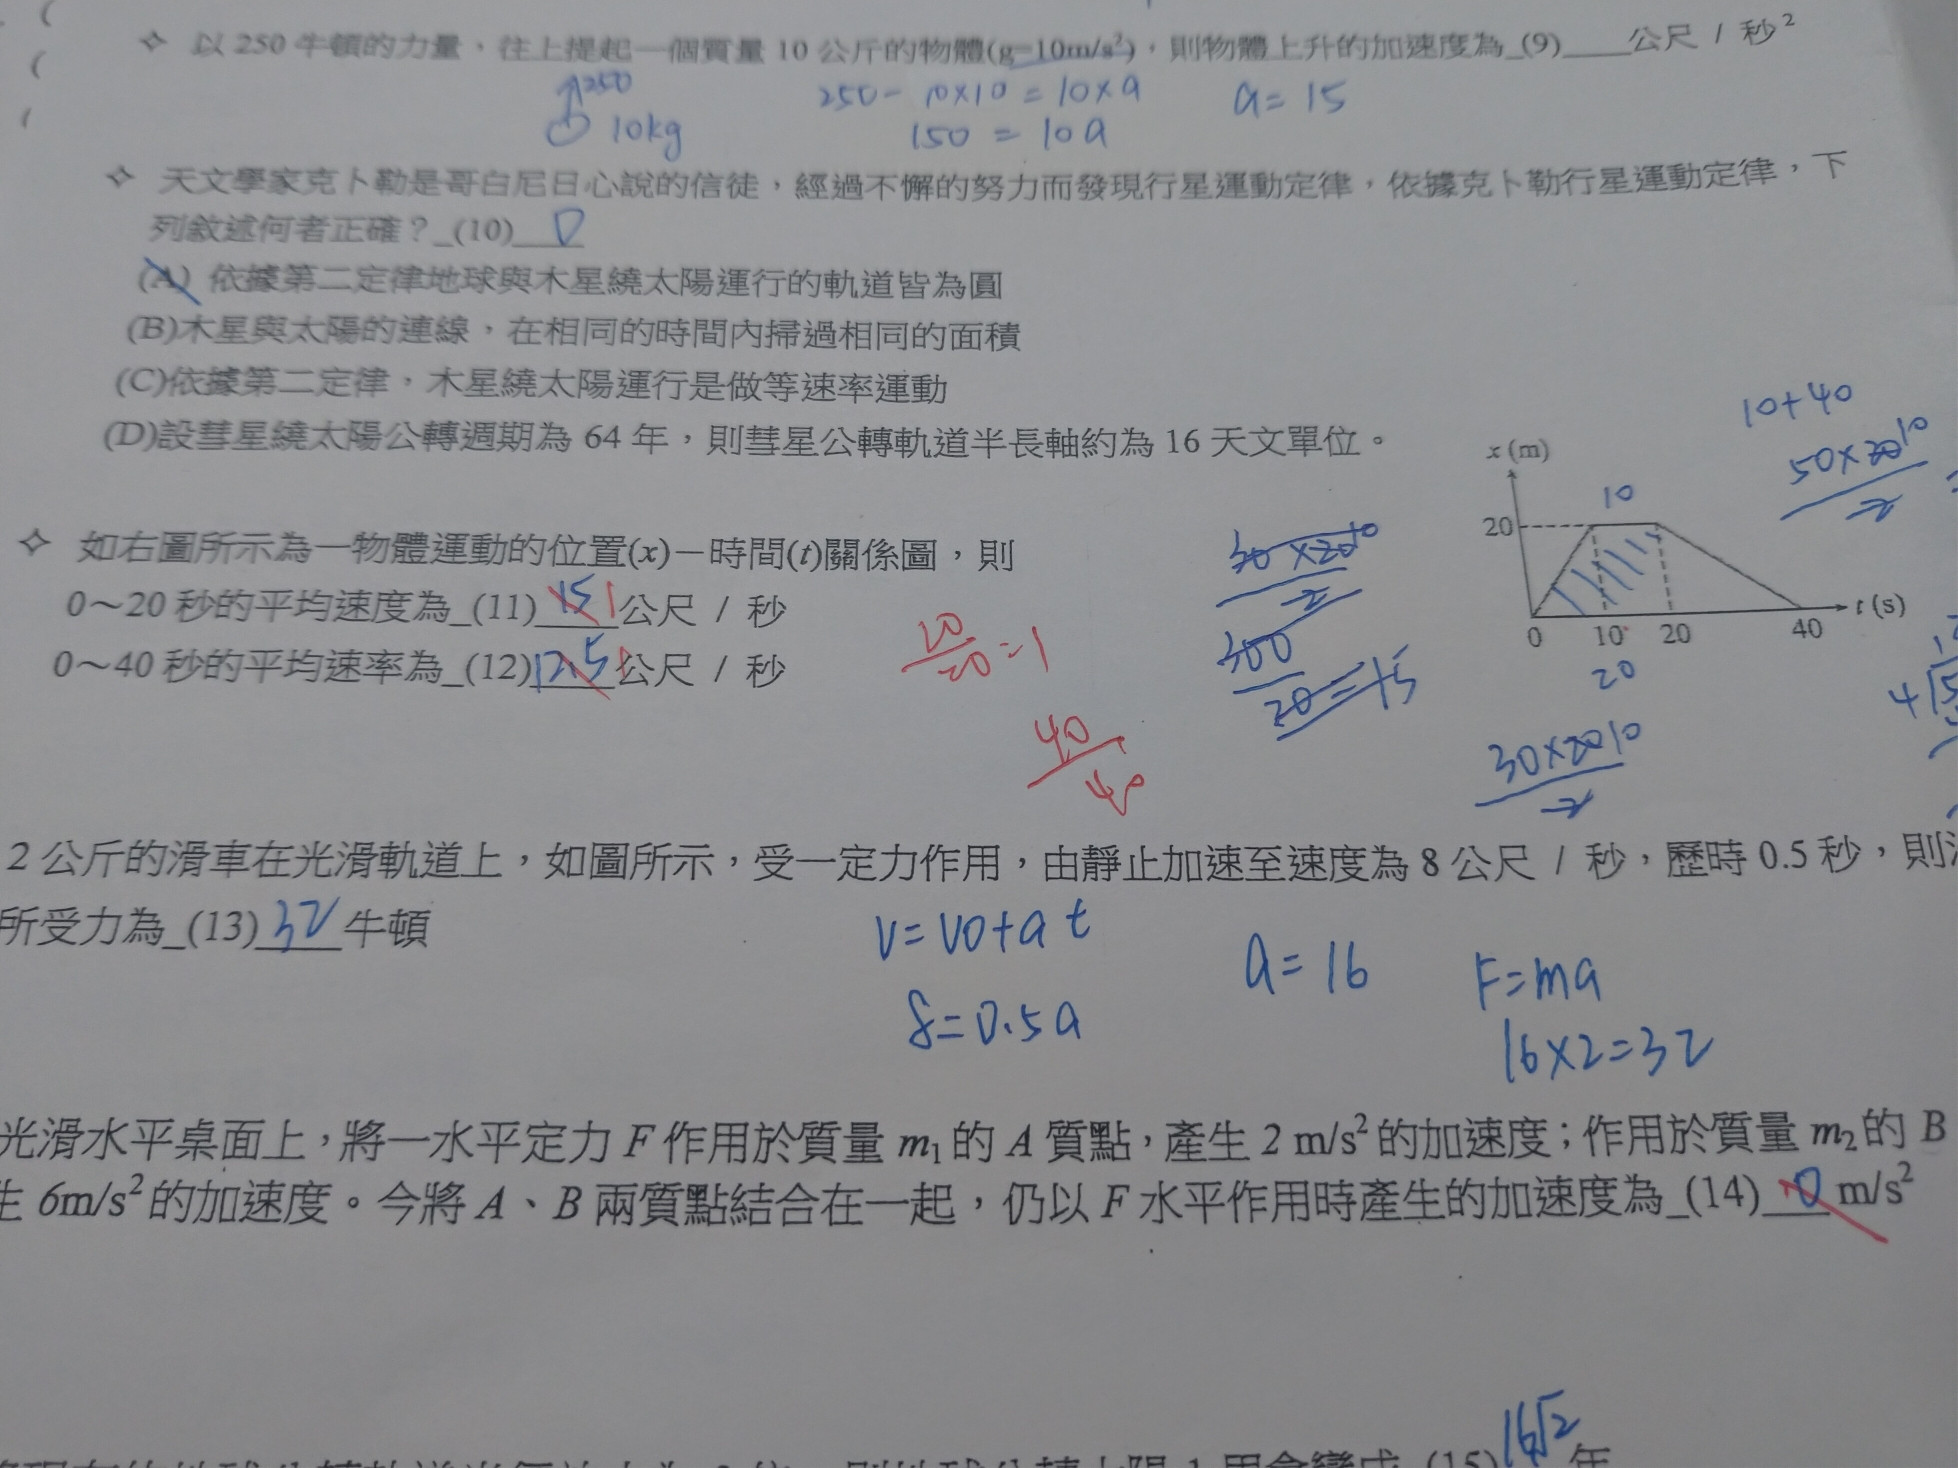 ✧ 以 250 牛頓的力量，往上提起一個質量 10 公斤的物體(g=10m/s²)，則物體上升的加速度為_(9)____公尺 / 秒²
250
10kg
250- 10×10 = 10×a
150 = 10a
a= 15
✧ 天文學家克卜勒是哥白尼日心說的信徒，經過不懈的努力而發現行星運動定律，依據克卜勒行星運動定律，下
列敘述何者正確？_(10)__D__
(A) 依據第二定律地球與木星繞太陽運行的軌道皆為圓
(B)木星與太陽的連線，在相同的時間內掃過相同的面積
(C)依據第二定律，木星繞太陽運行是做等速率運動
(D)設彗星繞太陽公轉週期為 64 年，則彗星公轉軌道半長軸約為 16 天文單位。
10+40
50×20 10
2
x (m)
20
10
0 10 20 40 t (s)
20
✧ 如右圖所示為一物體運動的位置(x)－時間(t)關係圖，則
0～20 秒的平均速度為_(11)_15 1_公尺 / 秒
0～40 秒的平均速率為_(12)_12.5_公尺 / 秒
20/20 =1
40/40
30 ×20 10
2
300
20 = 15
30×20 10
2
2 公斤的滑車在光滑軌道上，如圖所示，受一定力作用，由靜止加速至速度為 8 公尺 / 秒，歷時 0.5 秒，則
所受力為_(13)_32_牛頓
V= V0+a t
8=0.5a
a= 16
F=ma
16×2=32
光滑水平桌面上，將一水平定力 F 作用於質量 m₁ 的 A 質點，產生 2 m/s² 的加速度；作用於質量 m₂ 的 B
生 6m/s² 的加速度。今將 A、B 兩質點結合在一起，仍以 F 水平作用時產生的加速度為_(14)____ m/s²
(15) 16√2 年